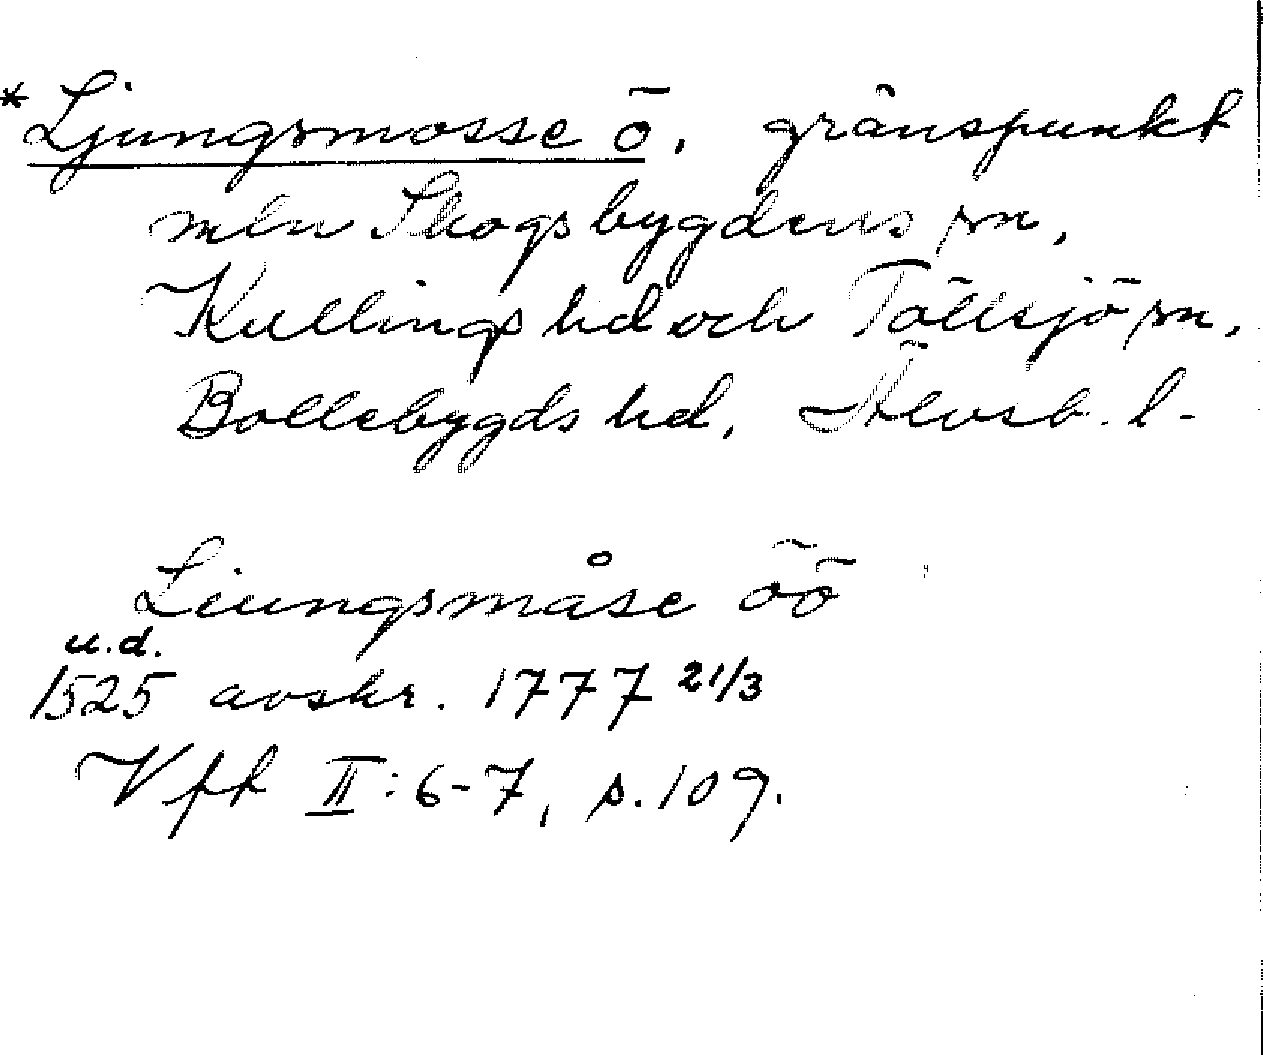 *Ljungsmosse ö, gränspunkt
mln Skogsbygdens sn,
Kullings hd och Töllsjö sn,
Bollebygds hd, Älvsb. l.
Liungsmåse öö
u.d.
1525 avskr. 1777 21/3
Vff II:6-7, s.109.